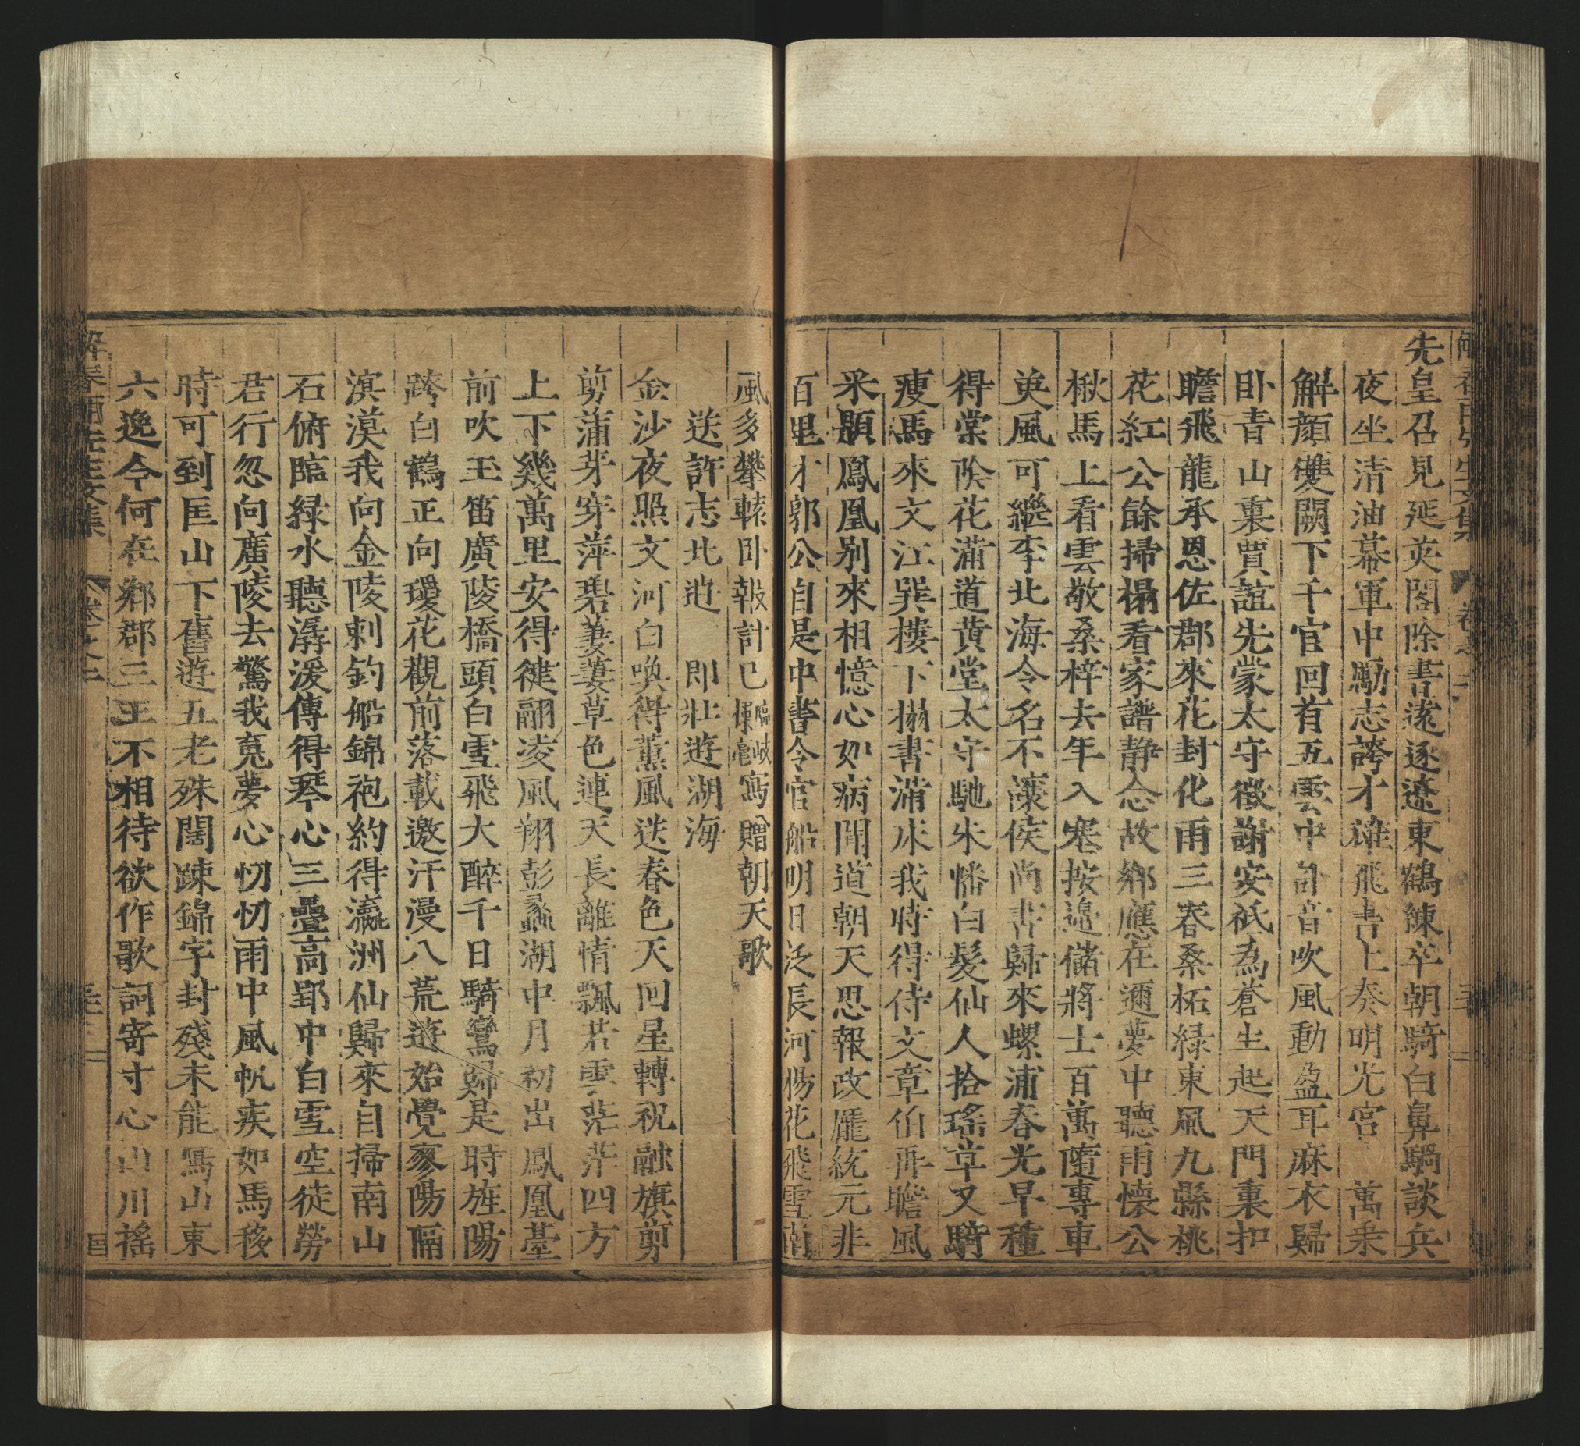 先皇召見延英閣除書遠逐遼東鶴練卒朝騎白鼻騧談兵
夜坐清油幕軍中勵志誇才雄飛書上奏明光宮 萬乗
解顔雙闕下千官回首五雲中 音吹風動盈耳麻衣歸
卧青山裏賈誼先蒙太守徵謝安祇為蒼生起天門裏扣
瞻飛龍承恩佐郡來花封化雨三春桑柘緑東風九縣桃
花紅公餘掃榻看家譜静念故鄉應在邇夢中聽雨懷公
楸馬上看雲敬桑梓去年入塞按邊儲將士百萬隨專車
英風可繼李北海令名不讓侯尚書歸來螺浦春光早種
得棠陰花滿道黄堂太守馳朱幡白髮仙人拾瑤草又騎
瘦馬來文江巽樓下搨書滿床我時得侍文章伯再瞻風
采顥鳳凰别來相憶心如病聞道朝天思報政龐統元非
百里才郭公自是中書令官船明日泛長河楊花飛雪南
風多攀轅卧報計已 寫贈朝天歌
送許志北遊 即壯遊湖海
金沙夜照文河白喚得薰風送春色天回星轉祝融旗剪
剪蒲芽穿萍碧萋萋草色連天長離情飄若雲茫茫四方
上下幾萬里安得健翮凌風翔彭蠡湖中月初出鳳凰臺
前吹玉笛廣陵橋頭白雪飛大醉千日騎鸞歸是時旌陽
跨白鶴正向瓊花觀前落載邀汗漫八荒遊始覺豪陽隔
溟漠我向金陵刺釣船錦袍約得瀛洲仙歸來自掃南山
石俯臨緑水聽潺湲傳得琴心三疊高郢中白雪空徒勞
君行忽向廣陵去驚我寛夢心忉忉雨中風帆疾如馬移
時可到匡山下舊遊五老殊闊踈錦字封殘未能寫山東
六逸今何在鄉郡三王不相待欲作歌詞寄寸心山川遙
解春雨先生文集 卷之二